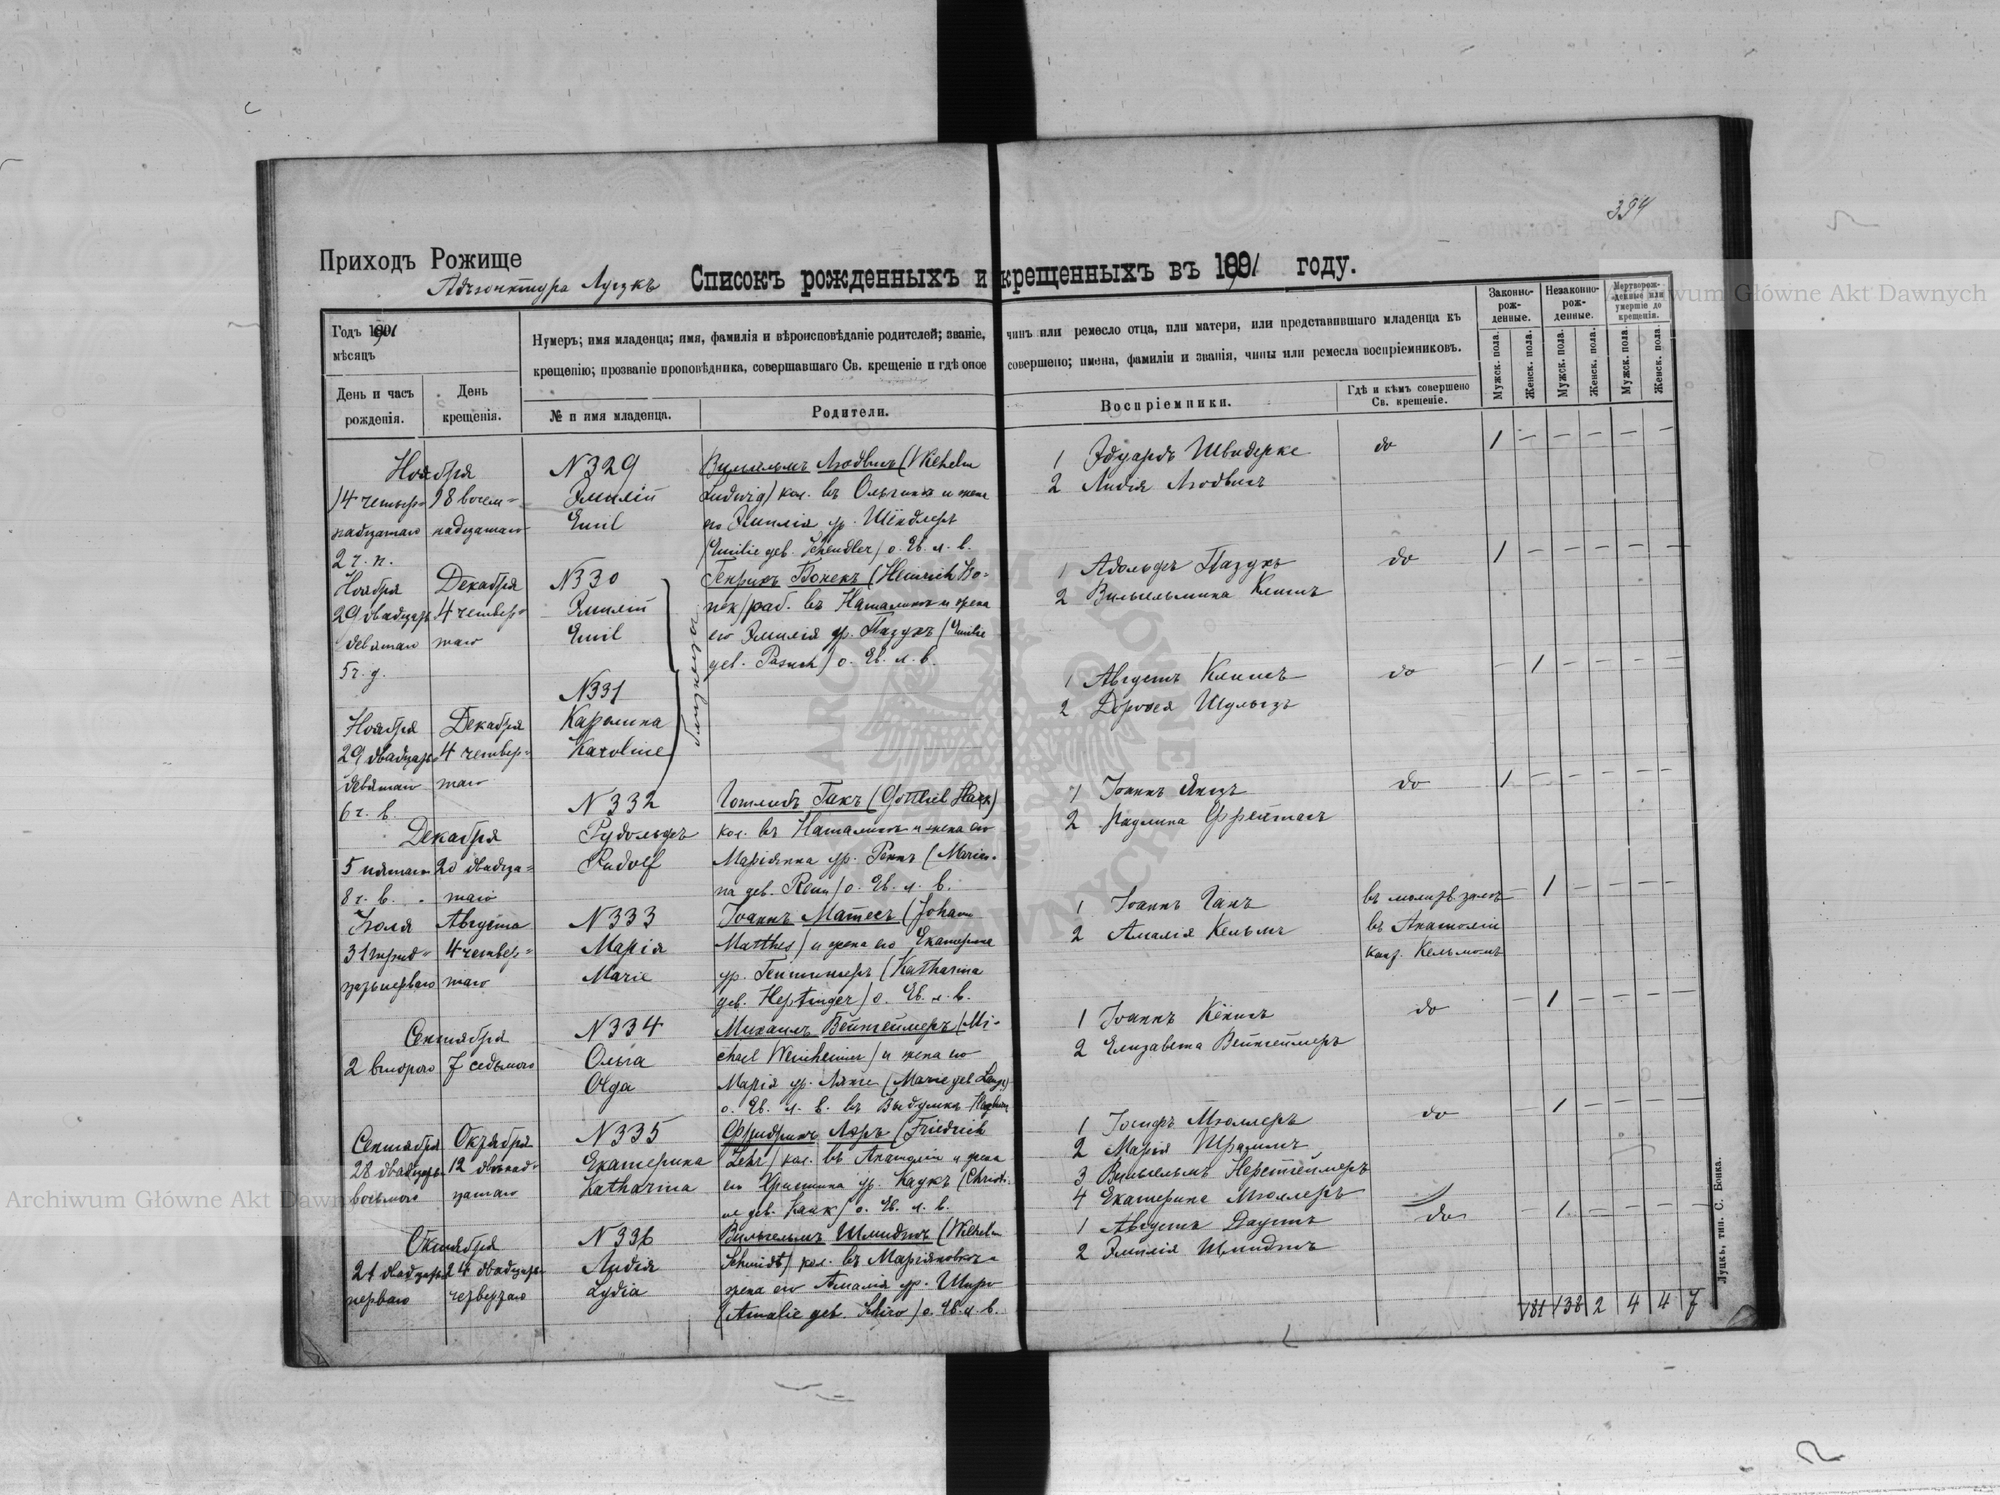 394
Приходъ Рожище
Адъюнктура Луцкъ
Списокъ рожденныхъ и крещенныхъ въ 1891 году.
Годъ 1891
мѣсяцъ
День и часъ рожденія.
День крещенія.
Нумеръ; имя младенца; имя, фамилія и вѣроисповѣданіе родителей; званіе, чинъ или ремесло отца, или матери, или представившаго младенца къ
крещенію; прозваніе проповѣдника, совершавшаго Св. крещеніе и гдѣ оное совершено; имена, фамиліи и званія, чины или ремесла воспріемниковъ.
№ и имя младенца.
Родители.
Воспріемники.
Гдѣ и кѣмъ совершено Св. крещеніе.
Законно-рож-денные.
Незаконно-рож-денные.
Мертворож-денные или умершіе до крещенія.
Мужск. пола.
Женск. пола.
Мужск. пола.
Женск. пола.
Мужск. пола.
Женск. пола.
Ноября
14 четыр-
надцатаго
2 ч. п.
18 восем-
надцатаго
N 329
Эмилій
Emil
Вильгельмъ Людвигъ (Wilhelm
Ludwig) кол. въ Ольганкѣ и жена
его Эмилія ур. Шендлеръ
(Emilie geb. Schendler) о. Ев. л. в.
1 Эдуардъ Швидерке
2 Лидія Людвигъ
do
1 — — — — —
Ноября
29 двадцать
девятаго
5 ч. д.
Декабря
4 четвер-
таго
N 330
Эмилій
Emil
близнецы
Генрихъ Бонекъ (Heinrich Bo-
nek) раб. въ Наталинѣ и жена
его Эмилія ур. Пазухъ (Emilie
geb. Pasuch) о. Ев. л. в.
1 Адольфъ Пазухъ
2 Вильгельмина Клингъ
do
1 — — — — —
Ноября
29 двадцать
девятаго
6 ч. в.
Декабря
4 четвер-
таго
N 331
Каролина
Karoline
1 Августъ Клингъ
2 Доротея Шульцъ
do
— 1 — — — —
Декабря
5 пятаго
8 ч. в.
20 двадца-
таго
N 332
Рудольфъ
Rudolf
Готлибъ Гакъ (Gottlieb Hack)
кол. въ Наталинѣ и жена его
Маріянна ур. Реннъ (Marian-
na geb. Renn) о. Ев. л. в.
1 Іоаннъ Янцъ
2 Паулина Фрейтагъ
do
1 — — — — —
Іюля
31 трид-
цать перваго
Августа
4 четвер-
таго
N 333
Марія
Marie
Іоаннъ Матесъ (Johann
Matthes) и жена его Екатерина
ур. Гептингеръ (Katharina
geb. Heptinger) о. Ев. л. в.
1 Іоаннъ Ганъ
2 Амалія Кельмъ
въ молитв. залѣ
въ Анатоліи
кант. Кельмомъ
— 1 — — — —
Сентября
2 второго
7 седьмого
N 334
Ольга
Olga
Михаилъ Вейнгеймеръ (Mi-
chael Weinheimer) и жена его
Марія ур. Лянге (Marie geb. Lange)
о. Ев. л. в. въ Выдумкѣ
1 Іоаннъ Кёнигъ
2 Елизавета Вейнгеймеръ
do
— 1 — — — —
Сентября
28 двадцать
восьмого
Октября
12 двѣнад-
цатаго
N 335
Екатерина
Katharina
Фридрихъ Леръ (Friedrich
Lehr) кол. въ Анатоліи и жена
его Христина ур. Каукъ (Christi-
ne geb. Kauk) о. Ев. л. в.
1 Іосифъ Мюллеръ
2 Марія Шраммъ
3 Вильгельмъ Нерстгеймеръ
4 Екатерина Мюллеръ
do
— 1 — — — —
Октября
21 двадцать
перваго
24 двадцать
четвертаго
N 336
Лидія
Lydia
Вильгельмъ Шмидтъ (Wilhelm
Schmidt) кол. въ Маріяновкѣ и
жена его Амалія ур. Широ
(Amalie geb. Schiro) о. Ев. л. в.
1 Августъ Даустъ
2 Эмилія Шмидтъ
do
— 1 — — — —
181 138 2 4 4 7
Луцкъ, тип. С. Бонка.
Archiwum Główne Akt Dawnych
Archiwum Główne Akt Dawnych